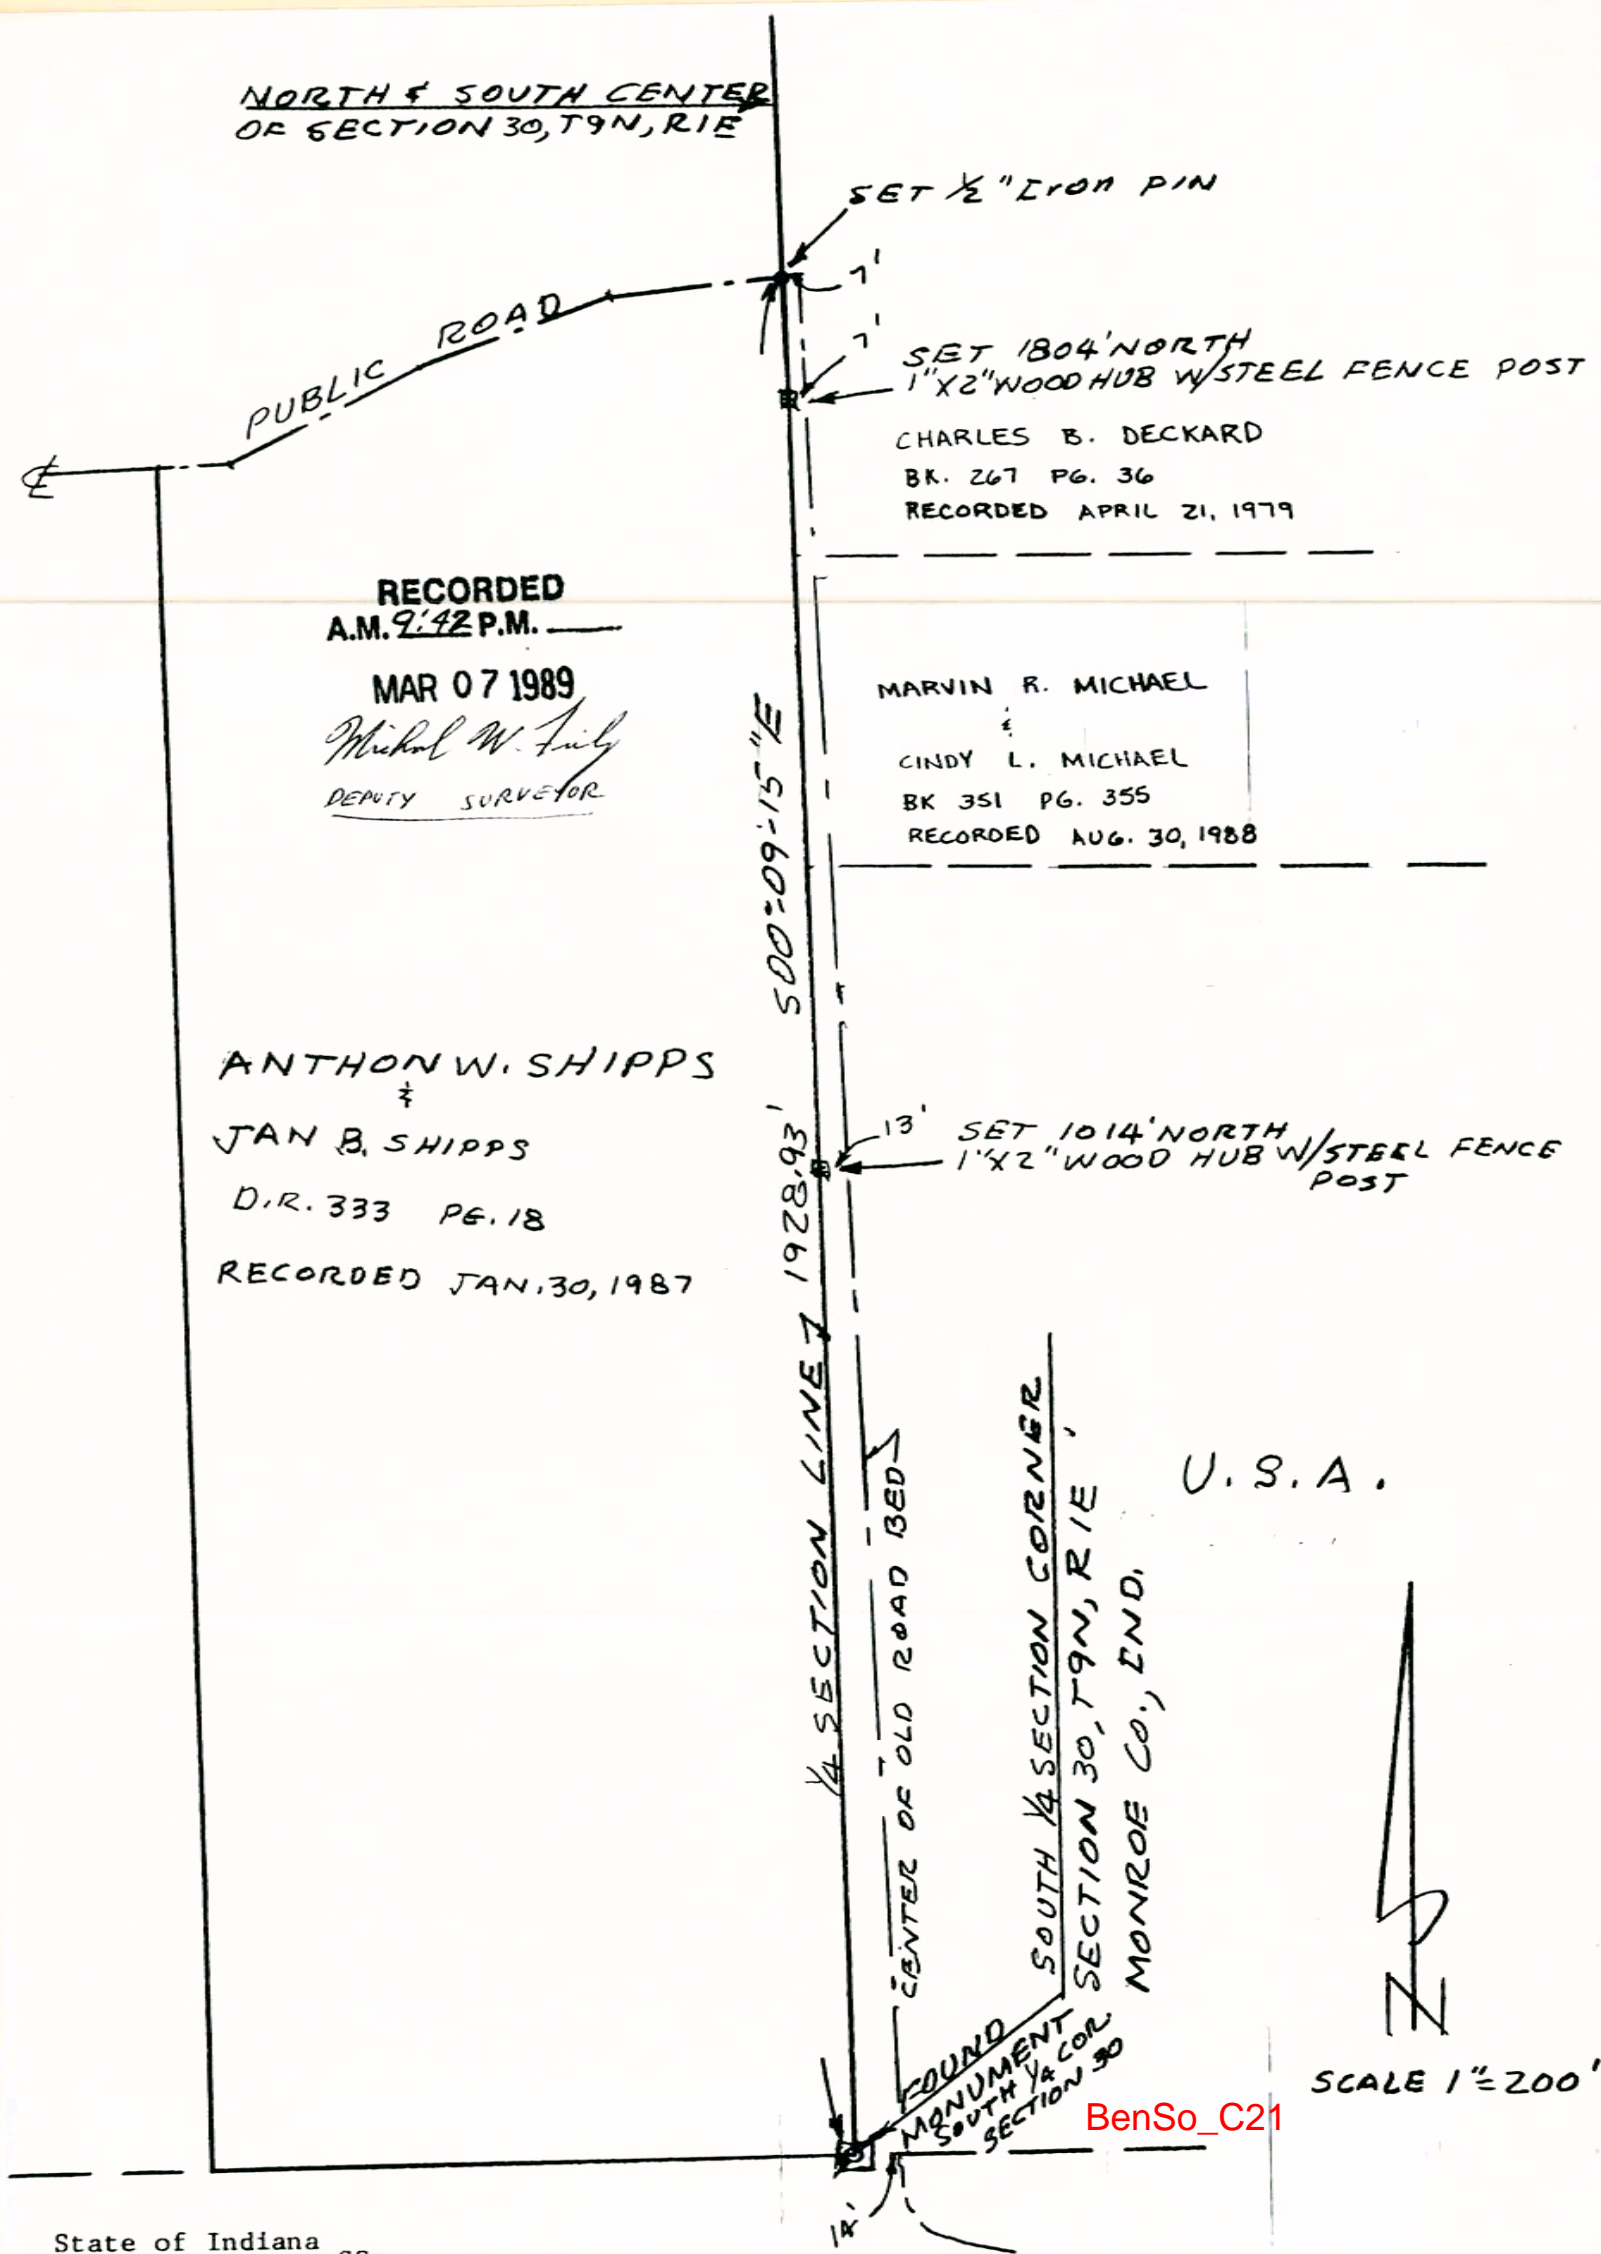 NORTH & SOUTH CENTER
OF SECTION 30, T9N, R1E
SET 1/2" Iron PIN
7'
7'
PUBLIC ROAD
SET 1804' NORTH
1"X2" WOOD HUB W/STEEL FENCE POST
CHARLES B. DECKARD
BK. 267 PG. 36
RECORDED APRIL 21, 1979
℄
RECORDED
A.M. 9:42 P.M.
MAR 07 1989
DEPUTY SURVEYOR
MARVIN R. MICHAEL
&
CINDY L. MICHAEL
BK 351 PG. 355
RECORDED AUG. 30, 1988
S00°-09'-15"E
1928.93'
1/4 SECTION LINE
ANTHON W. SHIPPS
&
JAN B. SHIPPS
D.R. 333 PG. 18
RECORDED JAN. 30, 1987
13'
SET 1014' NORTH
1"X2" WOOD HUB W/STEEL FENCE
POST
CENTER OF OLD ROAD BED
SOUTH 1/4 SECTION CORNER
SECTION 30, T9N, R1E
MONROE CO., IND.
U.S.A.
N
SCALE 1"=200'
FOUND
MONUMENT
SOUTH 1/4 COR.
SECTION 30
BenSo_C21
State of Indiana